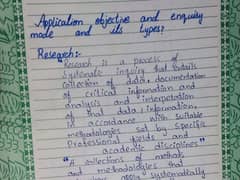 Application objective and enquiry
mode and its types?
Research:-
"Research is a process of
Systematic inquiry that entails
collection of data, documentation
of critical information and
analysis and interpretation
of that data / information,
in accordance with suitable
methodologies set by specific
Professional fields and
academic disciplines"
"A collections of methods
and methodologies that
apply systematically